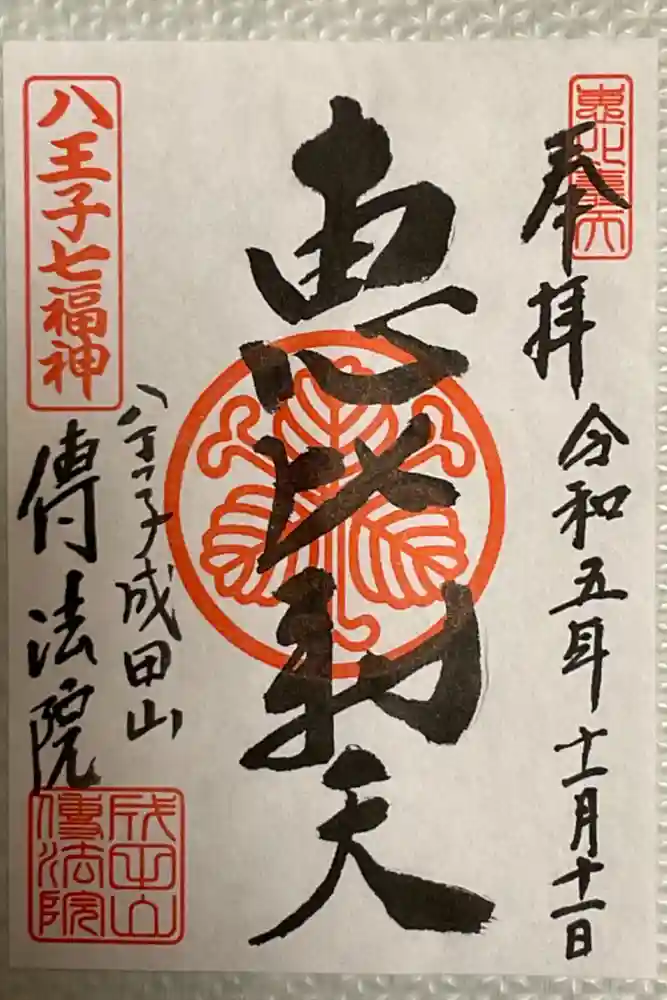 恵比壽天
奉拝
令和五年十一月十一日
恵比寿天
八王子七福神
八王子成田山
傳法院
成田山
傳法院